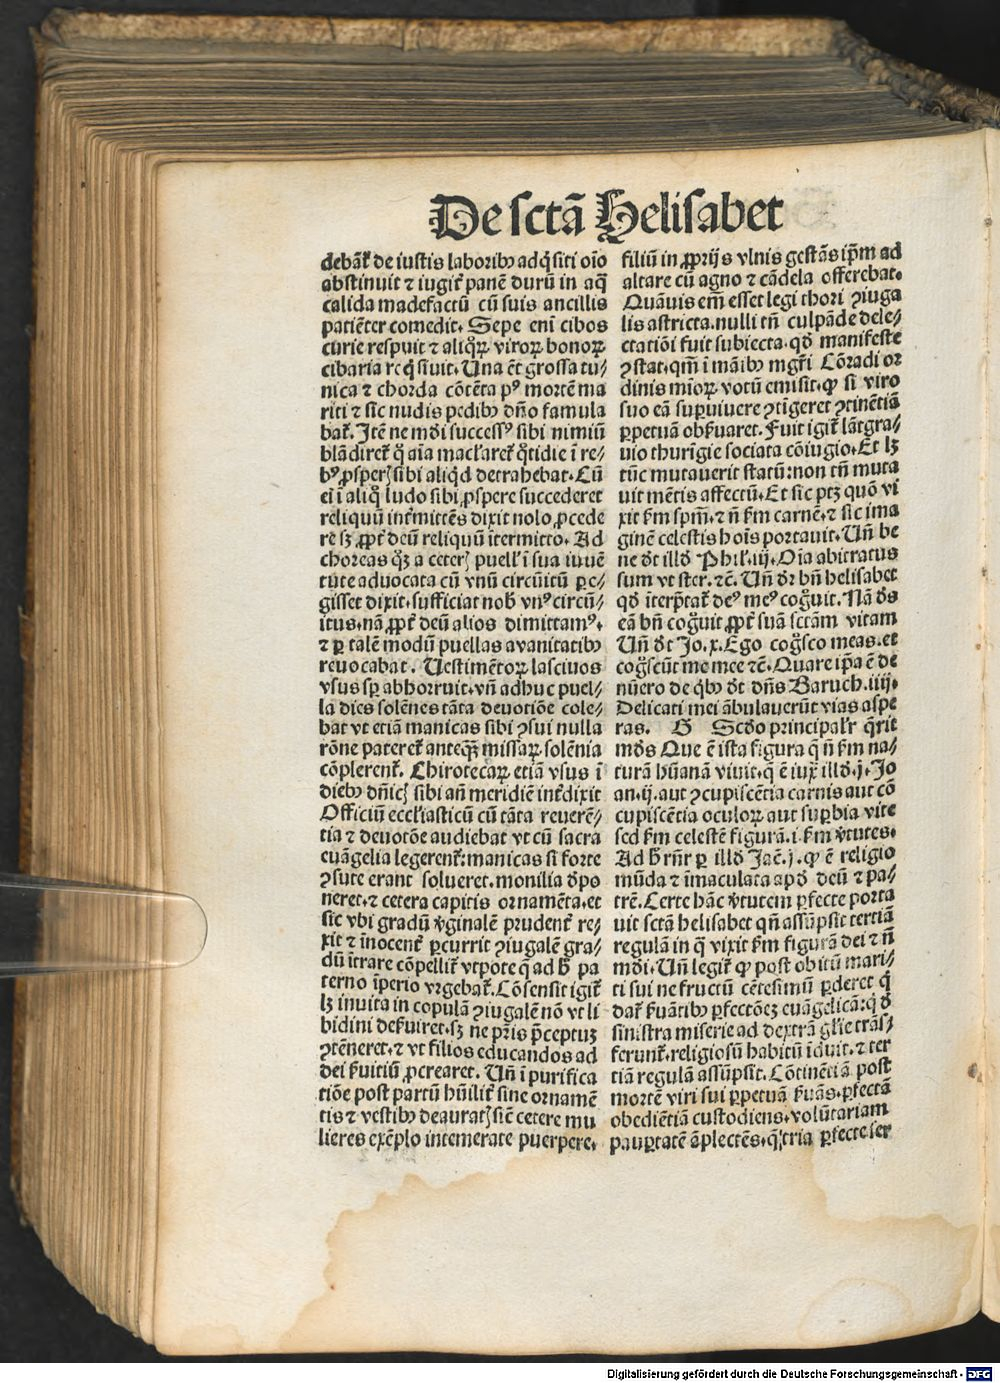 De sctā Helisabet
debāt̄ de iustis laboribꝰ adq̄siti oīo
abstinuit ⁊ iugit̄ panē durū in aq̄
calida madefactū cū suis ancillis
patiēter comedit. Sepe eni cibos
curie respuit ⁊ aliqꝝ viroꝝ bonoꝝ
cibaria req̄siuit. Una ēt grossa tu⸗
nica ⁊ chorda cōtēta pꝰ mortē ma
riti ⁊ sic nudis pedibꝰ dn̄o famula
bat̄. Itē ne mūdi successꝰ sibi nimiū
blādiret̄ q̄ aīa maclaret̄ q̄tidie ī re⸗
bꝰ ꝓsperis sibi aliqd detrahebat. Cū
ei ī aliq̄ ludo sibi ꝓspere succederet
reliquū int̄mittēs dixit nolo ꝓcede
re sꝫ ꝓpt̄ deū reliquū ītermitto. Ad
choreas qꝫ a ceteris puell̄ ī sua iuuē
tute aduocata cū vnū circūitū ꝑe⸗
gisset dixit. sufficiat nob̄ vnꝰ circū⸗
itus. nā ꝓpt̄ deū alios dimittamꝰ.
⁊ ꝑ talē modū puellas a vanitatibꝰ
reuocabat. Uestimētoꝝ lasciuos
vsus sp̄ abhorruit. vn̄ adhuc puel⸗
la dies solēnes tāta deuotiōe cole⸗
bat vt etiā manicas sibi ꝯsui nulla
rōne pateret̄ anteqꝫ missaꝝ solēnia
cōplerent̄. Chirotecaꝝ etiā vsus ī
diebꝰ dn̄icis sibi an̄ meridiē int̄dixit
Officiū eccl̄iasticū cū tāta reuerē⸗
tia ⁊ deuotōe audiebat vt cū sacra
euāgelia legerent̄: manicas si forte
ꝯsute erant solueret. monilia dēpo
neret. ⁊ cetera capitis ornamēta. et
sic vbi gradū v̄ginalē prudent̄ re⸗
xit ⁊ īnocent̄ ꝑcurrit ꝯiugalē gra⸗
dū ītrare cōpellit̄ vtpote q̄ ad h̄ pa
terno īperio vrgebat̄. Cōsensit igit̄
lꝫ inuita in copulā ꝯiugalē nō vt li
bidini des̄uiret. sꝫ ne pr̄is p̄ceptuꝫ
ꝯtēneret. ⁊ vt filios educandos ad
dei s̄uitiū ꝓcrearet. Un̄ ī purifica
tiōe post partū hūilit̄ sine ornamē
tis ⁊ vestibꝰ deauratis sic̄ cetere mu
lieres exēplo intemerate puerpere.
filiū in ꝓprijs vlnis gestās ip̄m ad
altare cū agno ⁊ cādela offerebat.
Quāuis em̄ esset legi thori ꝯiuga
lis astricta. nulli tn̄ culpāde dele⸗
ctatiōi fuit subiecta. qd̄ manifeste
ꝯstat. qm̄ ī māibꝰ mgr̄i Cōradi or
dinis mīoꝝ votū emisit. ꝙ si viro
suo eā suꝑuiuere ꝯtīgeret ꝯtinētiā
ꝑpetuā obs̄uaret. Fuit igit̄ lātgra⸗
uio thurigie sociata cōiugio. Et lꝫ
tūc mutauerit statū: non tn̄ muta
uit mētis affectū. Et sic ptꝫ quō vi
xit s̄m spm̄. ⁊ n̄ s̄m carnē. ⁊ sic ima
ginē celestis hoīs portauit. Un̄ be
ne d̄t illd̄ Phil. iij. Oīa abitratus
sum vt ster. ⁊c̄. Un̄ dr̄ bn̄ helisabet
qd̄ īterp̄tat̄ deꝰ meꝰ cog̊uit. Nā de̅s
eā bn̄ cog̊uit ꝓpt̄ suā sctām vitam
Un̄ d̄t Jo. x. Ego cog̊sco meas. et
cog̊scūt me mee ⁊c̄. Quare ip̄a ē de
nūero de qbꝰ d̄t dn̄s Baruch. iiij.
Delicati mei ābulauerūt vias aspe
ras. G Scd̄o principal̄r q̄rit̄
mōs Que ē ista figura q̄ n̄ s̄m na⸗
turā hūanā viuit. q̄ ē iux̄ illd̄. j. Jo
an. ij. aut ꝯcupiscētia carnis aut cō
cupiscētia oculoꝝ aut suꝑbia vite
sed s̄m celestē figurā. i. s̄m v̄tutes.
Ad h̄ rn̄r ꝑ illd̄ Jac̄. j. ꝙ ē religio
mūda ⁊ īmaculata apd̄ deū ⁊ pa⸗
trē. Certe hāc v̄tutem ꝑfecte porta
uit sctā helisabet qn̄ assūpsit tertiā
regulā in q̄ vixit s̄m figurā dei ⁊ n̄
mūdi. Un̄ legit̄ ꝙ post obitū mari⸗
ti sui ne fructū cētesimū ꝑderet q̄
dat̄ s̄uātibꝰ ꝑfectōeꝫ euāgelicā: q̄ d̄
sinistra miserie ad dextrā gl̄ie trās⸗
ferunt̄. religiosū habitū īduit. ⁊ ter
tiā regulā assūpsit. Cōtinētiā post
mortē viri sui ꝑpetuā s̄uās. ꝑfectā
obediētiā custodiens. volūtariam
pauꝑtatē āplectēs. q̄ tria ꝑfecte ser
Digitalisierung gefördert durch die Deutsche Forschungsgemeinschaft - DFG